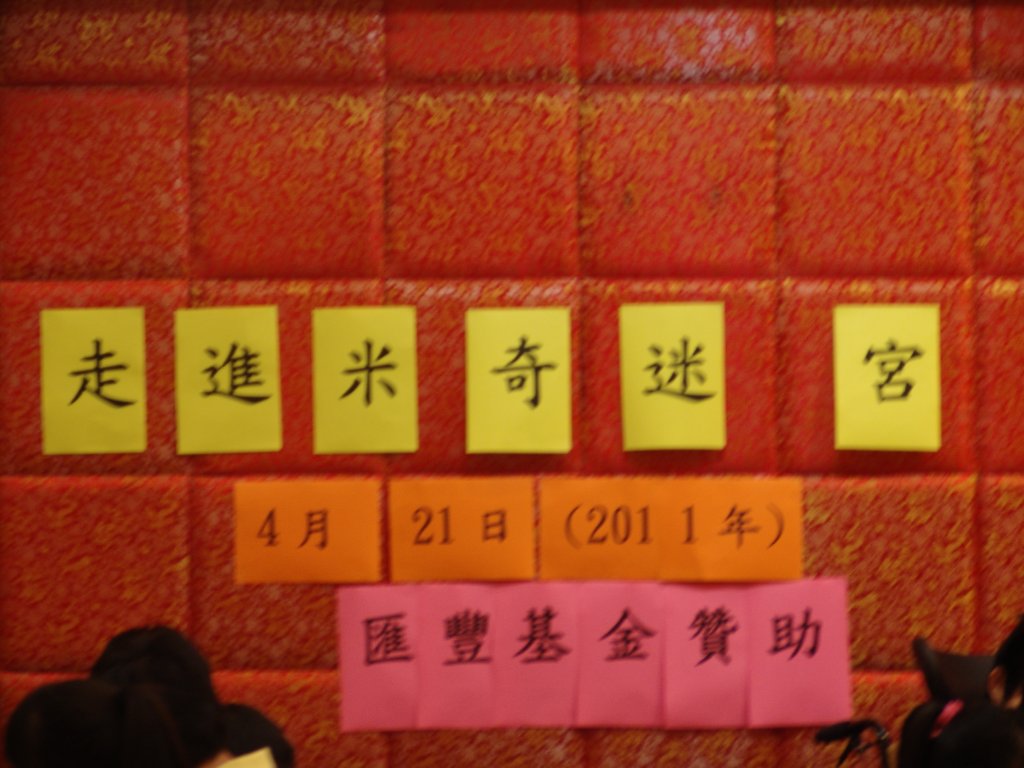 走進米奇迷宮
4月 21日 (2011年)
匯豐基金贊助